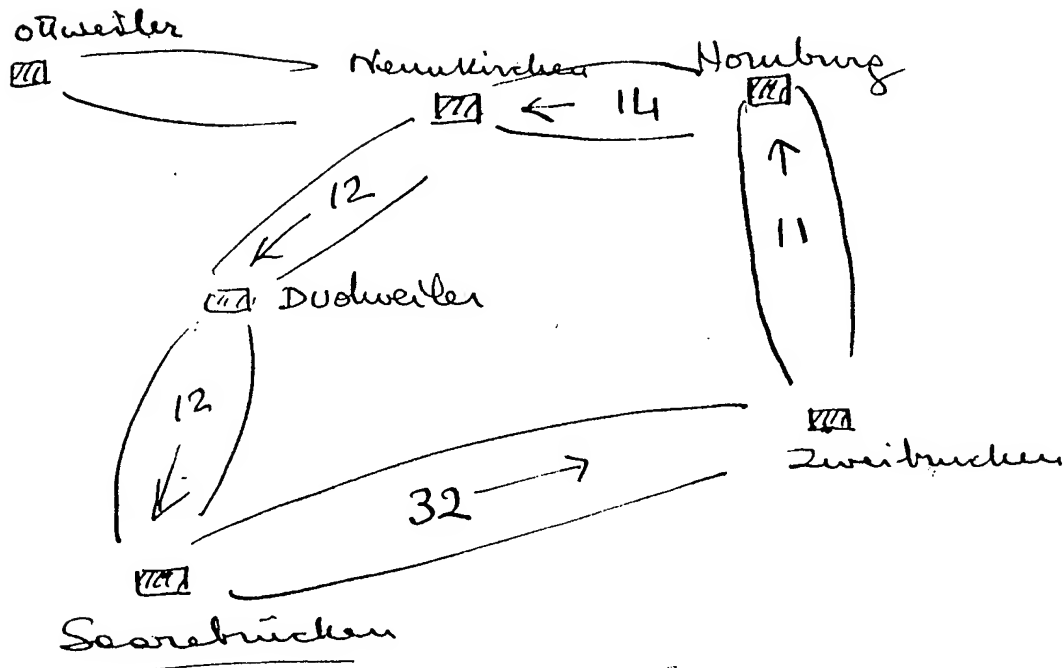 Ottweiler
Neunkirchen
Homburg
14
12
11
Dudweiler
12
Zweibrucken
32
Saarebrücken